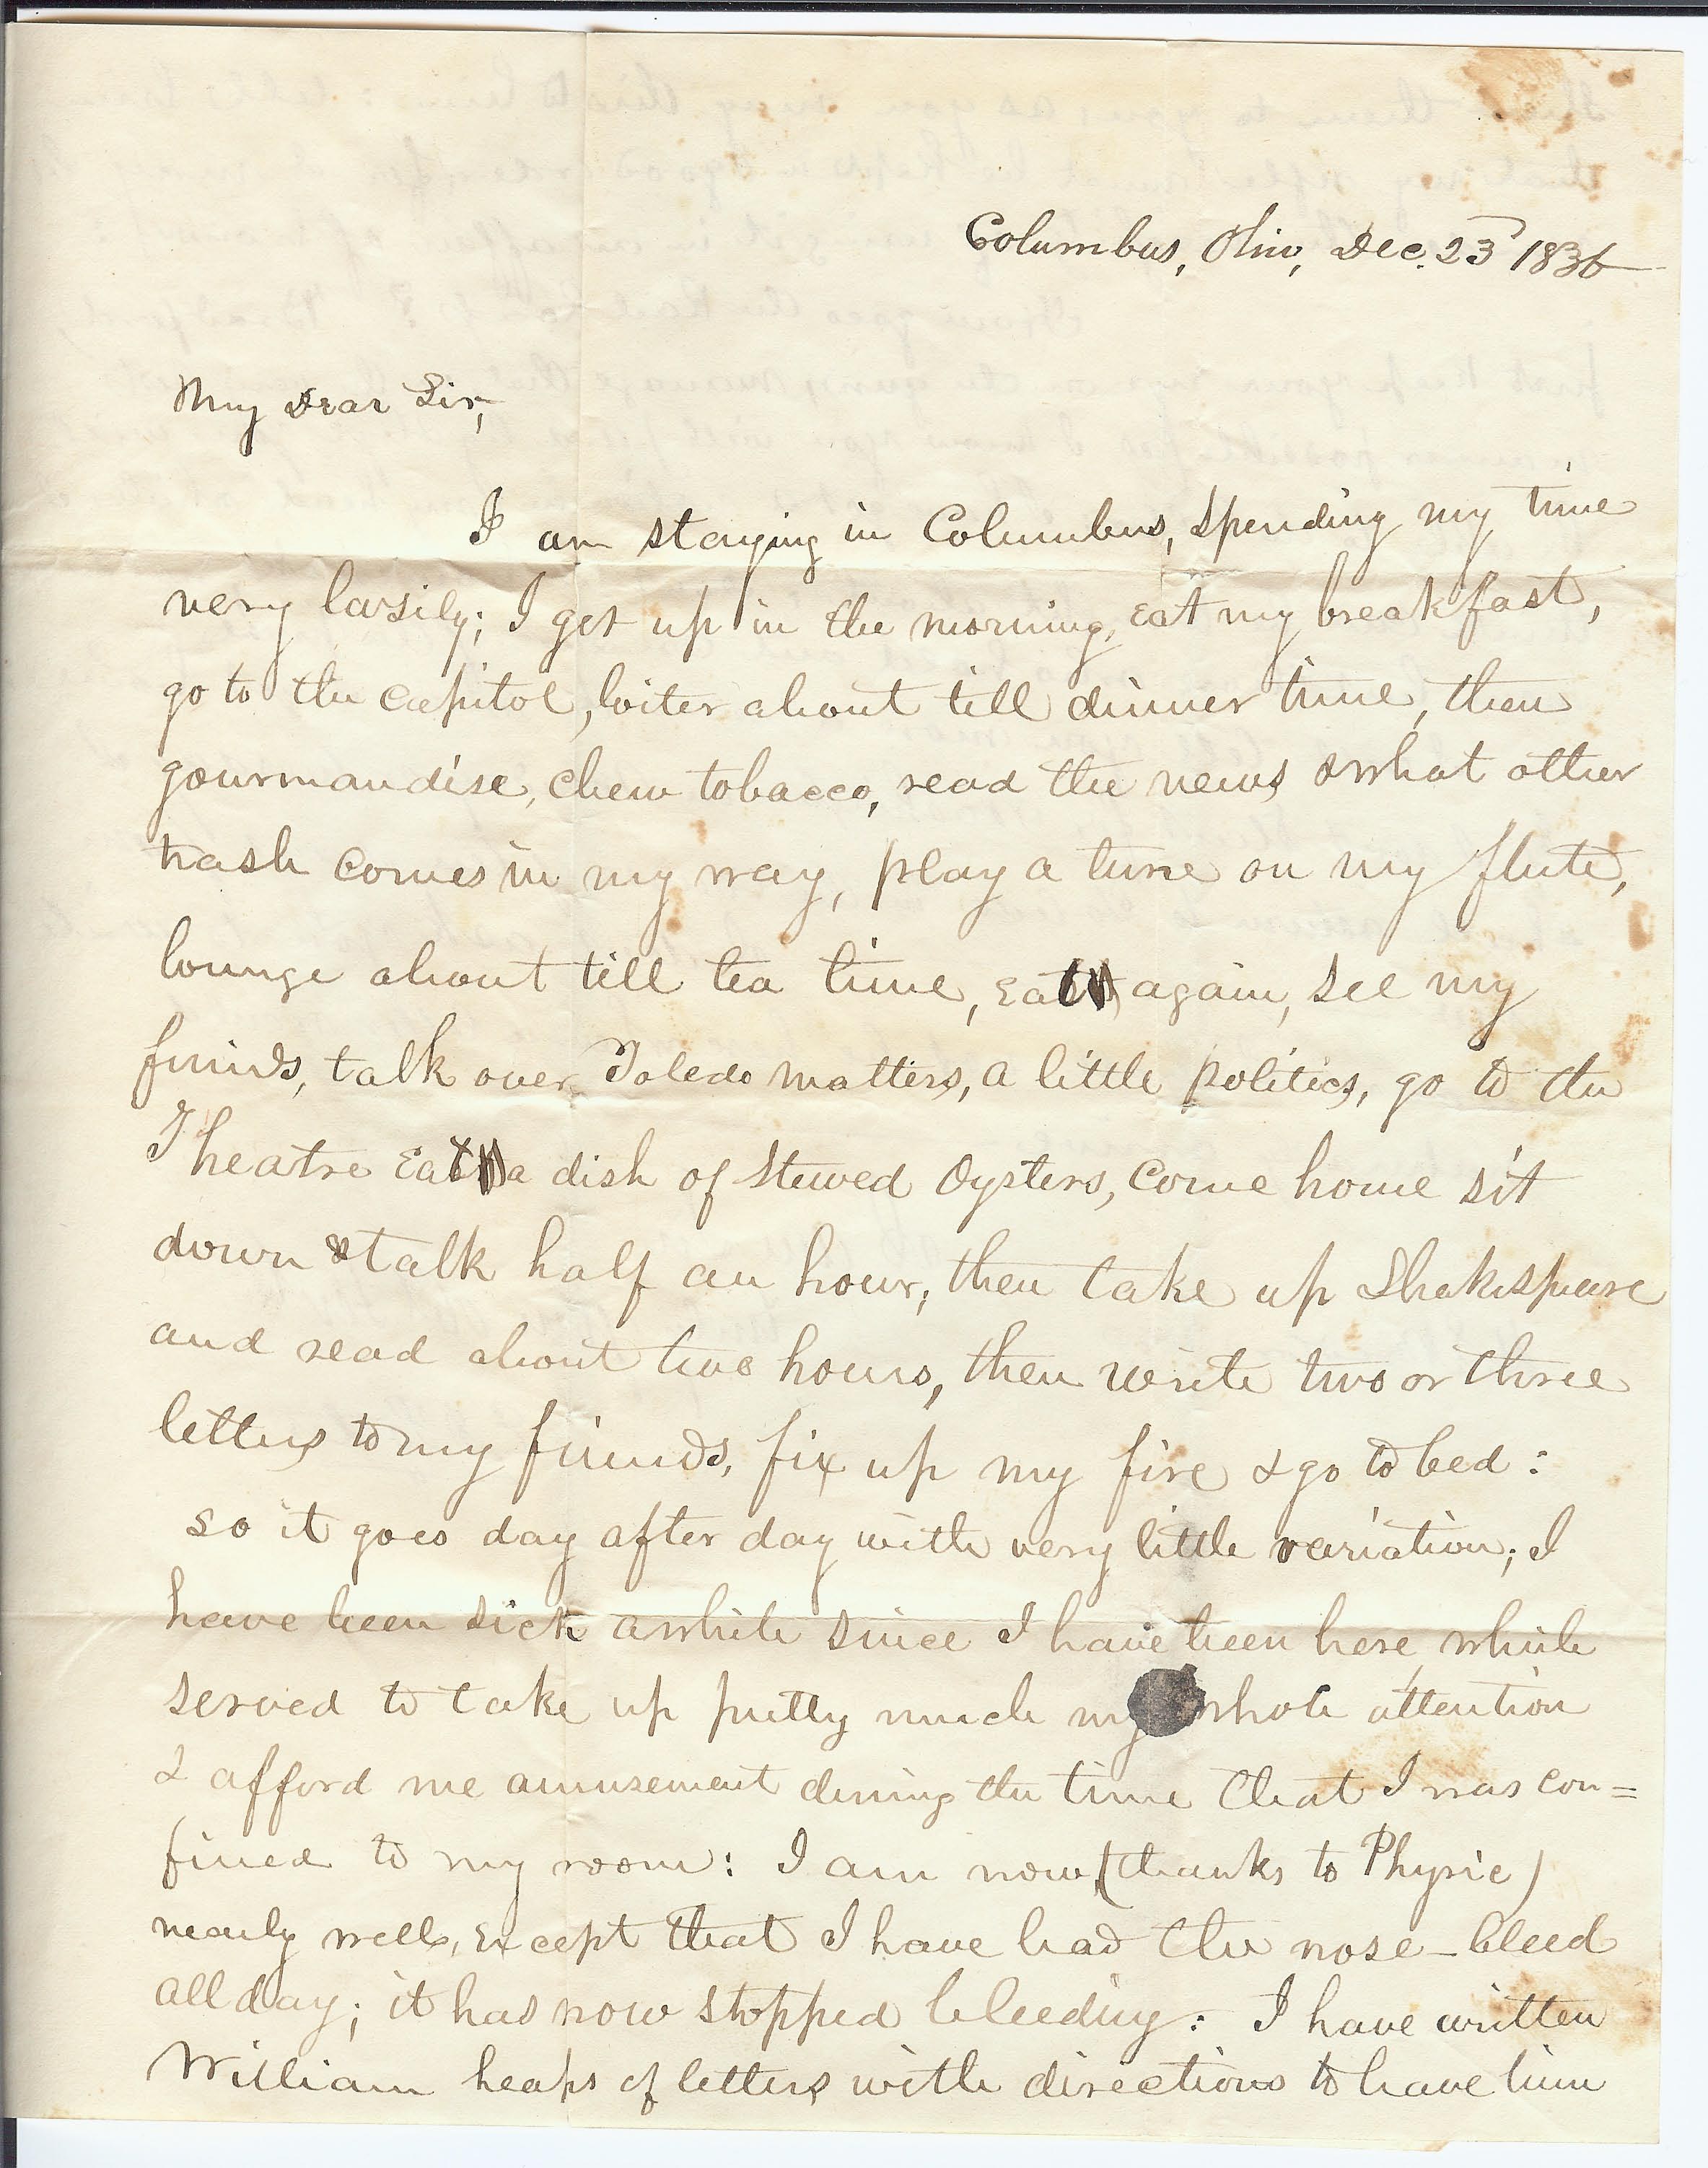 Columbus, Ohio, Dec. 23 1836
My Dear Sir,
I am staying in Columbus, spending my time
very lasily; I get up in the morning, eat my breakfast,
go to the capitol, loiter about till dinner time, then
gourmandise, chew tobacco, read the news & what other
trash comes in my way, play a tune on my flute,
lounge about till tea time, eat again, see my
friends, talk over Toledo matters, a little politics, go to the
Theatre eat a dish of stewed oysters, come home sit
down & talk half an hour, then take up Shakespeare
and read about two hours, then write two or three
letters to my friends, fix up my fire & go to bed:
so it goes day after day with very little variation; I
have been sick awhile since I have been here which
served to take up pretty much my whole attention
& afford me amusement during the time that I was con=
fined to my room: I am now (thanks to Physic)
nearly well, except that I have had the nose-bleed
all day; it has now stopped bleeding: I have written
William heaps of letters with directions to have him